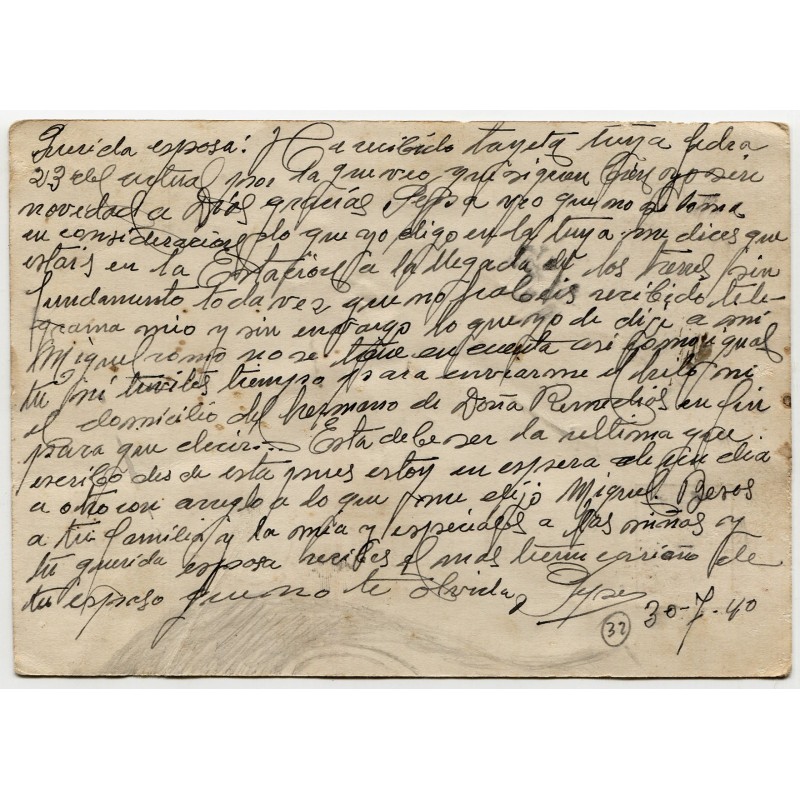 Querida esposa: He recibido tarjeta tuya fecha
23 del actual por la que veo que siguen bien yo sin
novedad a Dios gracias Pepa veo que no se toma
en consideracion lo que yo digo en la tuya me dices que
estais en la Estacion a la llegada de los trenes sin
fundamento toda vez que no habeis recibido tele-
grama mio y sin envargo lo que yo de dije a mi
Miguel como no se tuvo en cuenta asi como igual
tu ni tuvistes tiempo para enviarme el ni
el domicilio del hermano de Doña Remedios en fin
para que decir... Esta debe ser la ultima que
escribo desde esta pues estoy en espera de un dia
a otro con arreglo a lo que me dijo Miguel. Besos
a tu familia y la mia y especiales a las niñas y
tu querida esposa recibes el mas tierno cariaño de
tu esposo que no te olvida,
30-7-40
32